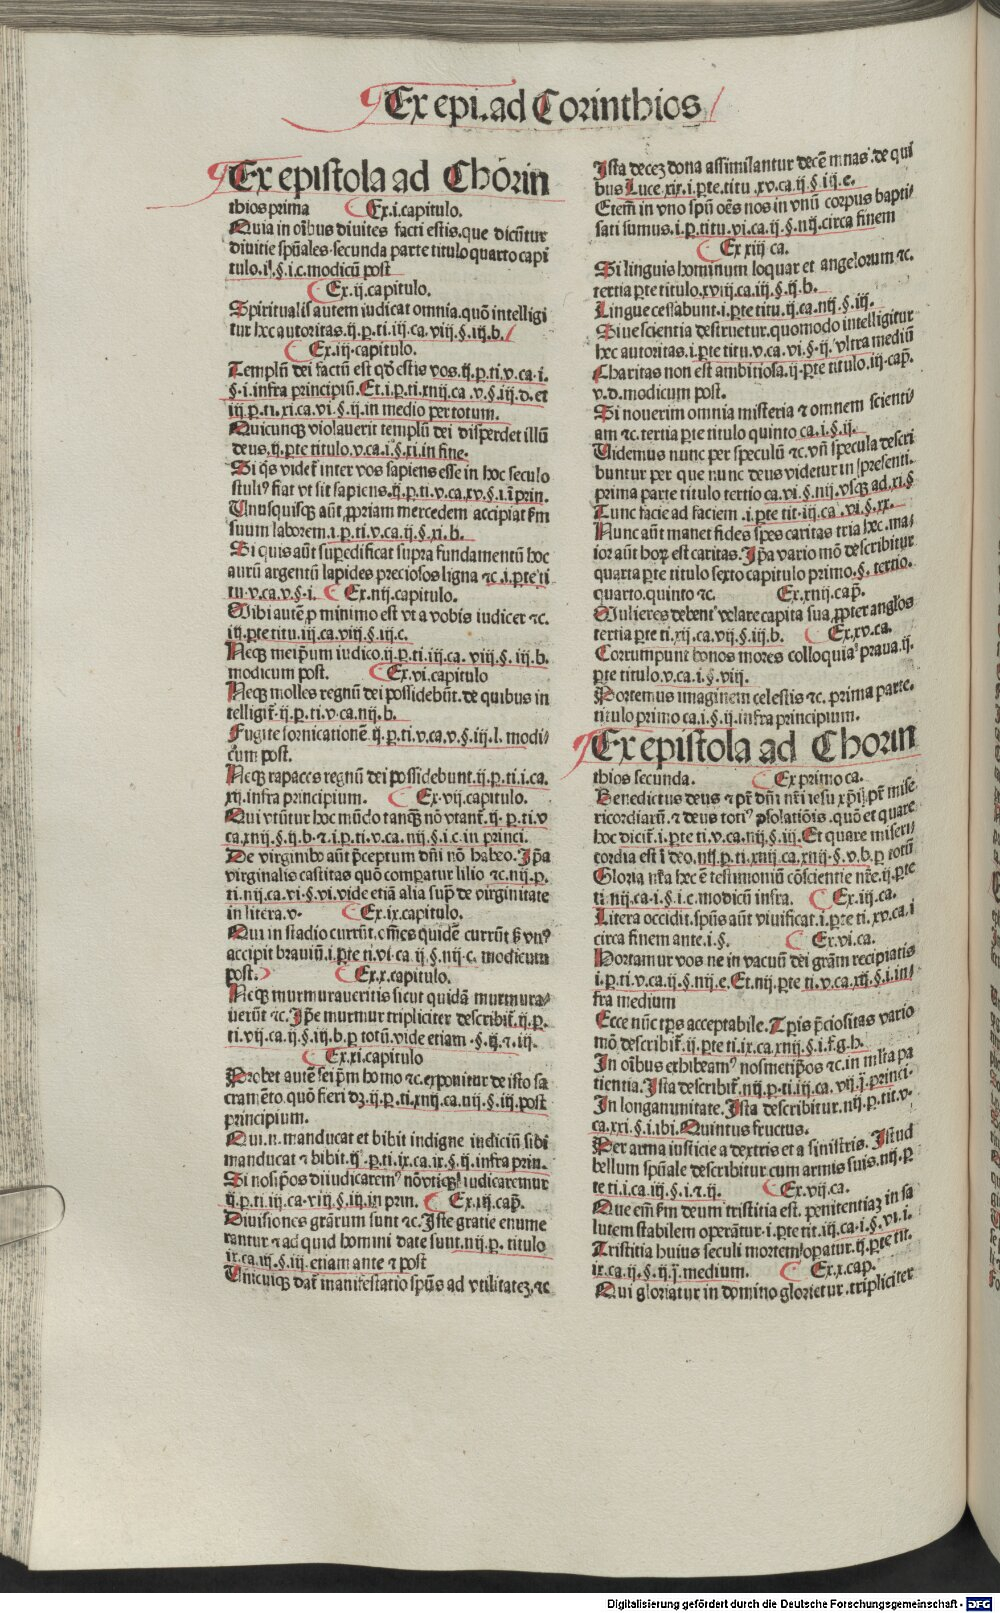 Ex epi. ad Corinthios
Ex epistola ad Chorin
thios prima Ex .i. capitulo.
Quia in oibus diuites facti estis. que dicūtur
diuitie spūales. secunda parte titulo quarto capi
tulo. ij. §. i. c. modicū post
Ex .ij. capitulo.
Spiritualis autem iudicat omnia. quō intelligi
tur hec autoritas. ij. p. ti. iij. ca. viij. §. iij. b.
Ex .iij. capitulo.
Templū dei factū est qd estis vos. ij. p. ti. v. ca. i.
§. i. infra principiū. Et .i. p. ti. xnij. ca. v. §. iij. d. et
iij. p. ti. xi. ca. vi. §. ij. in medio per totum.
Quicunqꝫ violauerit templū dei disperdet illū
deus. ij. p̄te titulo. v. ca. i. §. xi. in fine.
Si qs videt̄ inter vos sapiens esse in hoc seculo
stultꝰ fiat vt sit sapiens. ij. p. ti. v. ca. xv. §. i. ī prin.
Unusquisqꝫ aūt ꝓpriam mercedem accipiat ẜm
suum laborem. i. p. ti. v. ca. ij. §. xi. b.
Si quis aūt supedificat supra fundamentū hoc
aurū argentū lapides preciosos ligna ⁊c. i. p̄te ti
tu. v. ca. v. §. i. Ex .nij. capitulo.
Mihi autē ꝓ minimo est vt a vobis iudicer ⁊c.
iij. p̄te titu. iij. ca. viij. §. iij. c.
Neqꝫ meip̄um iudico. ij. p. ti. iij. ca. viij. §. iij. b.
modicum post. Ex .vi. capitulo
Neqꝫ molles regnū dei possidebūt. de quibus in
telligit̄. ij. p. ti. v. ca. nij. b.
Fugite fornicationē. ij. p. ti. v. ca. v. §. iij. l. modi/
cum post.
Neqꝫ rapaces regnū dei possidebunt. ij. p. ti. i. ca.
xij. infra principium. Ex .vij. capitulo.
Qui vtūtur hoc mūdo tanqꝫ nō vtant̄. ij. p. ti. v
ca. xnij. §. ij. b. ⁊. i. p. ti. v. ca. nij. §. i. c. in princi.
De virginibꝰ aūt p̄ceptum dn̄i nō habeo. Ip̄a
virginalis castitas quō compatur lilio ⁊c. nij. p.
ti. nij. ca. vi. §. vi. vide etiā alia sup̄ de virginitate
in litera. v. Ex .ix. capitulo.
Qui in stadio currūt. om̄es quidē currūt ß vnꝰ
accipit brauiū. i. p̄te ti. vi. ca. ij. §. nij. c. modicum
post. Ex .x. capitulo.
Neqꝫ murmuraueritis sicut quidā murmura/
uerūt ⁊c. Ip̄e murmur tripliciter describit̄. ij. p.
ti. vij. ca. ij. §. iij. b. p totū. vide etiam. §. ij. ⁊. iij.
Ex .xi. capitulo
Probet autē seip̄m homo ⁊c. exponitur de isto sa
cramēto. quō fieri dꝫ. ij. p. ti. xnij. ca. nij. §. iij. post
principium.
Qui .n. manducat et bibit indigne iudiciū sibi
manducat ⁊ bibit. ij. p. ti. ix. ca. ix. §. ij. infra prin.
Si nosip̄os diiudicaremꝰ nō vtiqꝫ iudicaremur
ij. p. ti. iij. ca. viij. §. iij. in prin. Ex .xij. cap̄.
Diuisiones grāꝝum sunt ⁊c. Iste gratie enume
rantur ⁊ ad quid homini date sunt. nij. p. titulo
ix. ca. vij. §. iij. etiam ante ⁊ post
Unicuiqꝫ dat̄ manifestatio sp̄us ad vtilitatez. ⁊c
Ista decez dona assimilantur decē mnas. de qui
bus Luce. xix. i. p̄te. titu. xv. ca. ij. §. iij. e.
Etem̄ in vno sp̄u oēs nos in vnū corpus bapti/
sati sumus. i. p. titu. vi. ca. ij. §. nij. circa finem
Ex xiij ca.
Si linguis hominum loquar et angelorum ⁊c.
tertia p̄te titulo. xviij. ca. iij. §. ij. b.
Lingue cessabunt. i. p̄te titu. ij. ca. nij. §. iij.
Siue scientia destruetur. quomodo intelligitur
hec autoritas. i. p̄te titu. v. ca. vi. §. ij. vltra mediū
Charitas non est ambitiosa. ij. p̄te titulo. iij. cap̄.
v. d. modicum post.
Si nouerim omnia misteria ⁊ omnem scienti/
am ⁊c. tertia p̄te titulo quinto ca. i. §. ij.
Videmus nunc per speculū ⁊c. vn̄ specula descri
buntur per que nunc deus videtur in presenti.
prima parte titulo tertio ca. vi. §. nij. vsqꝫ ad. xi. §
Tunc facie ad faciem. i. p̄te tit. iij. ca. vi. §. xx.
Nunc aūt manet fides spes caritas tria hec. ma/
ior aūt hoꝝ est caritas. Ip̄a vario mō describitur
quarta p̄te titulo sexto capitulo primo. §. tertio.
quarto. quinto ⁊c. Ex .xnij cap̄.
Mulieres debent velare capita sua ꝓpter anglos
tertia p̄te ti. xij. ca. vij. §. iij. b. Ex .xv. ca.
Corrumpunt bonos mores colloquia praua. ij.
p̄te titulo. v. ca. i. §. viij.
Portemus imaginem celestis ⁊c. prima parte.
titulo primo ca. i. §. ij. infra principium.
Ex epistola ad Chorin
thios secunda. Ex primo ca.
Benedictus deus ⁊ pr̄ dn̄i nr̄i iesu xp̄i. pr̄ mise
ricordiarū. ⁊ deus totiꝰ ꝯsolatiōis. quō et quare
hoc dicit̄. i. p̄te ti. v. ca. nij. §. iij. Et quare miseri/
cordia est ī deo. nij. p. ti. xnij. ca. xnij. §. v. b. p totū
Gloria nr̄a hec ē testimoniū cōscientie nr̄e. ij. p̄te
ti. nij. ca. i. §. i. e. modicū infra. Ex .iij. ca.
Litera occidit. sp̄us aūt viuificat. i. p̄te ti. xv. ca. i
circa finem ante. i. §. Ex .vi. ca.
Hortamur vos ne in vacuū dei grām recipiatis
i. p. ti. v. ca. ij. §. nij. e. Et. nij. p̄te ti. v. ca. xij. §. i. in/
fra medium
Ecce nūc tp̄s acceptabile. Tp̄is p̄ciositas vario
mō describit̄. ij. p̄te ti. ix. ca. xnij. §. i. f. g. h.
In oibus exhibeamꝰ nosmetip̄os ⁊c. in mlta pa
tientia. Ista describit̄. nij. p. ti. iij. ca. vij. ī. princi.
In longanimitate. Ista describitur. nij. p. tit. v.
ca. xxi. §. i. ibi. Quintus fructus.
Per arma iusticie a dextris et a sinistris. Istud
bellum sp̄uale describitur cum armis suis. nij. p
te ti. i. ca. iij. §. i. ⁊. ij. Ex .vij. ca.
Que em̄ ẜm deum tristitia est. penitentiaz in sa
lutem stabilem operātur. i. p̄te tit. iij. ca. i. §. vi. i.
Tristitia huius seculi mortem opatur. ij. p̄te tit.
ix. ca. ij. §. ij. ī. medium. Ex .x. cap.
Qui gloriatur in domino glorietur. tripliciter
Digitalisierung gefördert durch die Deutsche Forschungsgemeinschaft - DFG